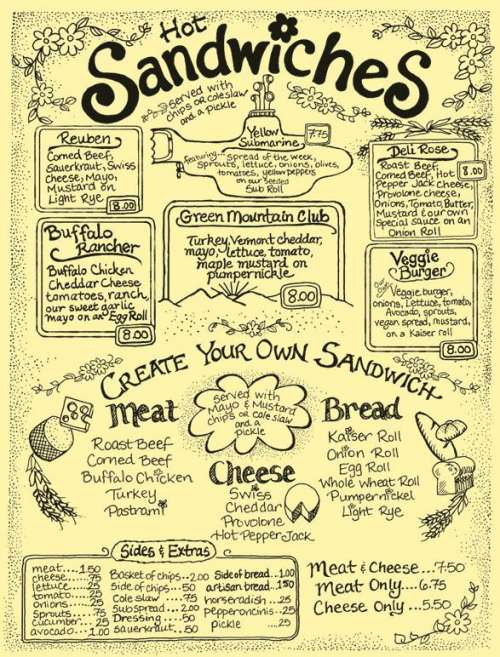 Hot
Sandwiches
served with
chips or coleslaw
and a pickle
Reuben
Corned Beef,
Sauerkraut, Swiss
Cheese, Mayo,
Mustard on
Light Rye
8.00
Yellow
Submarine
7.75
featuring... spread of the week,
sprouts, lettuce, onions, olives,
tomatoes, yellow peppers
on our seeded
Sub Roll
Deli Rose
Roast Beef,
Corned Beef, Hot
Pepper Jack cheese,
Provolone cheese,
Onions, Tomato, Butter,
Mustard & our own
special sauce on an
Onion Roll
8.00
Buffalo
Rancher
Buffalo Chicken
Cheddar Cheese
tomatoes, ranch,
our sweet garlic
mayo on an Egg Roll
8.00
Green Mountain Club
Turkey, Vermont cheddar,
mayo, lettuce, tomato,
maple mustard on
pumpernickle
8.00
Veggie
Burger
Our own
Veggie burger,
onions, Lettuce, tomato,
Avocado, sprouts,
vegan spread, mustard,
on a Kaiser roll
8.00
Create Your Own Sandwich
Meat
Roast Beef
Corned Beef
Buffalo Chicken
Turkey
Pastrami
served with
Mayo & Mustard
chips or coleslaw
and a
pickle
Cheese
Swiss
Cheddar
Provolone
Hot Pepper Jack
Bread
Kaiser Roll
Onion Roll
Egg Roll
Whole Wheat Roll
Pumpernickel
Light Rye
Sides & Extras
meat.....1.50
cheese.....75
lettuce.....25
tomato.....25
onions.....25
sprouts.....75
cucumber...25
avocado...1.00
Basket of chips...2.00
Side of chips...50
Cole slaw....75
Sub spread...2.00
Dressing....50
sauerkraut...50
Side of bread...1.00
artisan bread..1.50
horseradish...25
pepperoncinis..25
pickle ....25
Meat & Cheese...7.50
Meat Only...6.75
Cheese Only...5.50